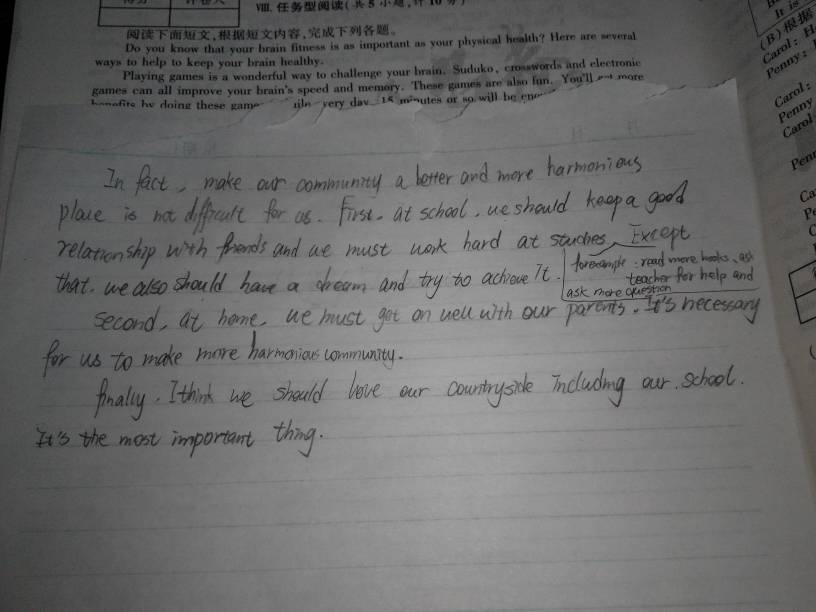 得分 评卷人
VIII. 任务型阅读(共5小题,计10分)
阅读下面短文,根据短文内容,完成下列各题。
Do you know that your brain fitness is as important as your physical health? Here are several
ways to help to keep your brain healthy.
Playing games is a wonderful way to challenge your brain. Suduko, crosswords and electronic
games can all improve your brain's speed and memory. These games are also fun. You'll get more
benefits by doing these games very day. 15 minutes or so will be
In fact, make our community a better and more harmonious
place is not difficult for us. First, at school, we should keep a good
relationship with friends and we must work hard at studies, Except
for example: read more books, ask
that. we also should have a dream and try to achieve it.
teacher for help and
ask more question
second, at home, we must get on well with our parents. It's necessary
for us to make more harmonious community.
finally. I think we should love our countryside including our school.
It's the most important thing.
(B)根据
Carol: H
Penny:
Carol:
Penny
Carol
Penn
Ca